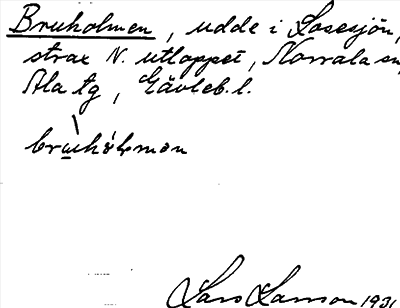 Bruholmen, udde i Losesjön,
strax N. utloppet, Norrala sn,
Ala tg, Gävleb. l.
bruhólmen
Lars Larsson 1931